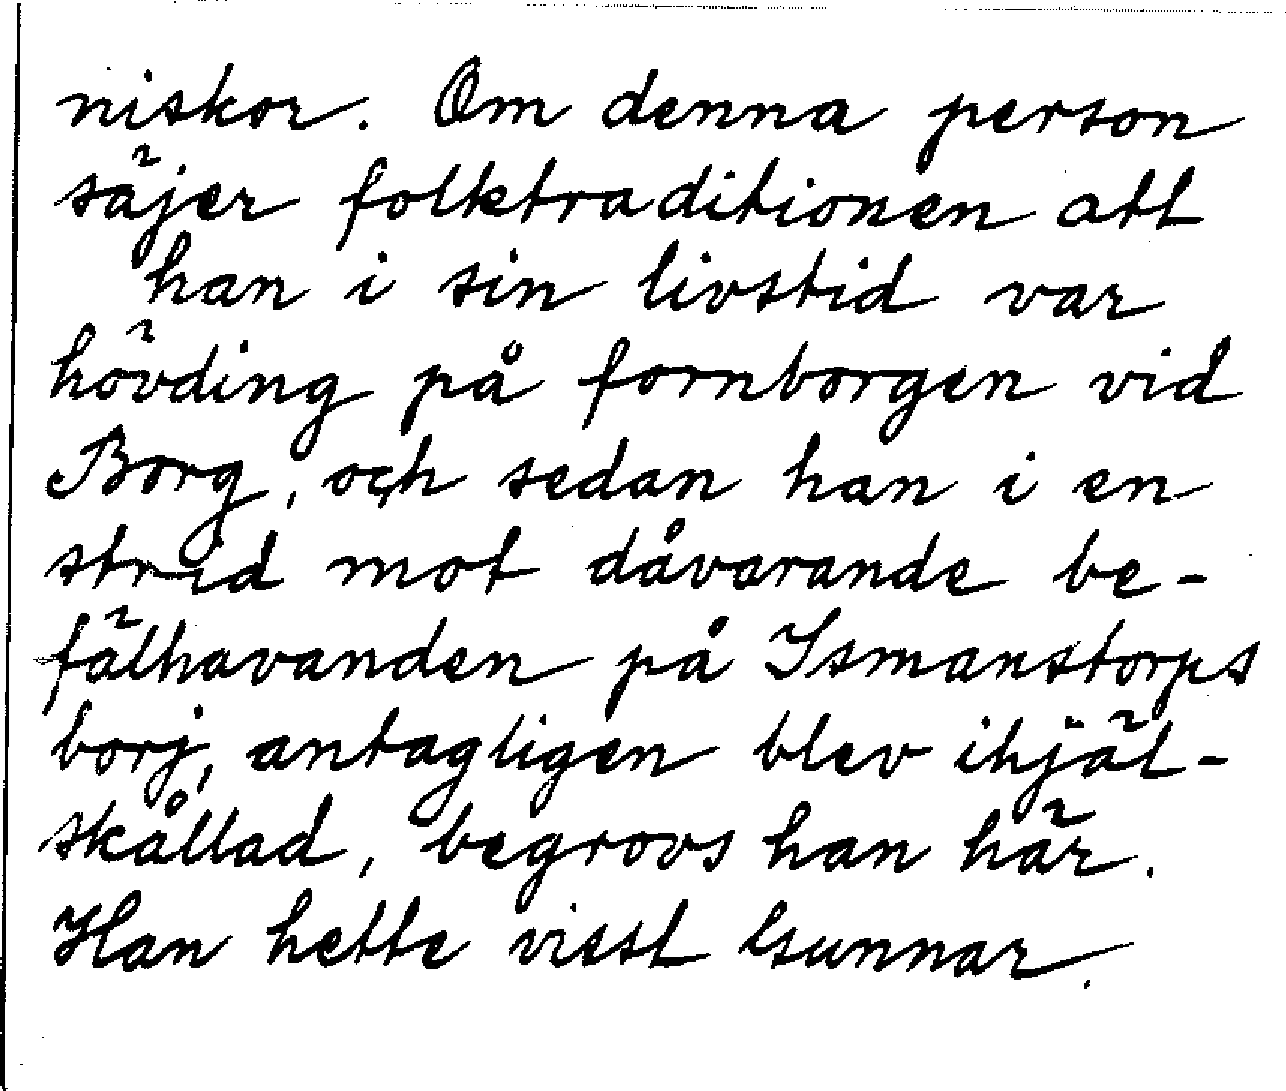 niskor. Om denna person
säjer folktraditionen att
han i sin livstid var
hövding på fornborgen vid
Borg, och sedan han i en
strid mot dåvarande be-
fälhavanden på Ismanstorps
borj, antagligen blev ihjäl-
skållad, begrovs han här.
Han hette visst Gunnar.